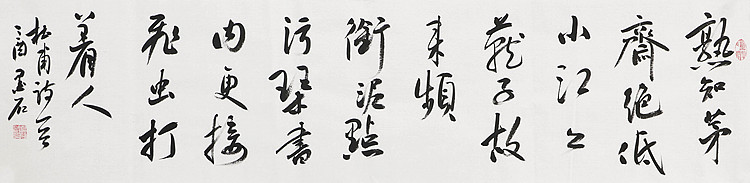 熟知茅
齋絕低
小江上
燕子故
来頻
銜泥點
污琴書
内更接
飛虫打
着人
杜甫詩一首
丁酉墨石